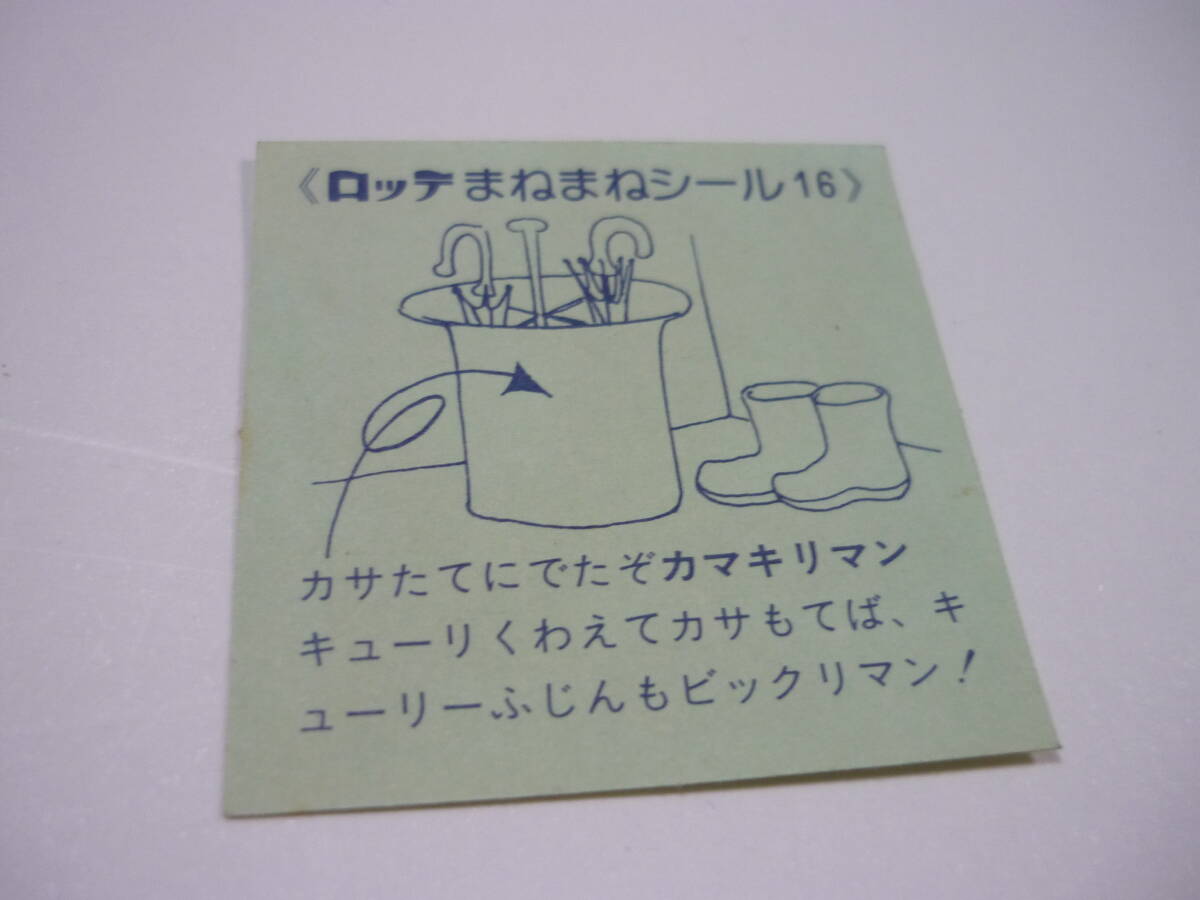 《ロッテまねまねシール16》
カサたてにでたぞカマキリマン
キューリくわえてカサもてば、キ
ューリーふじんもビックリマン!